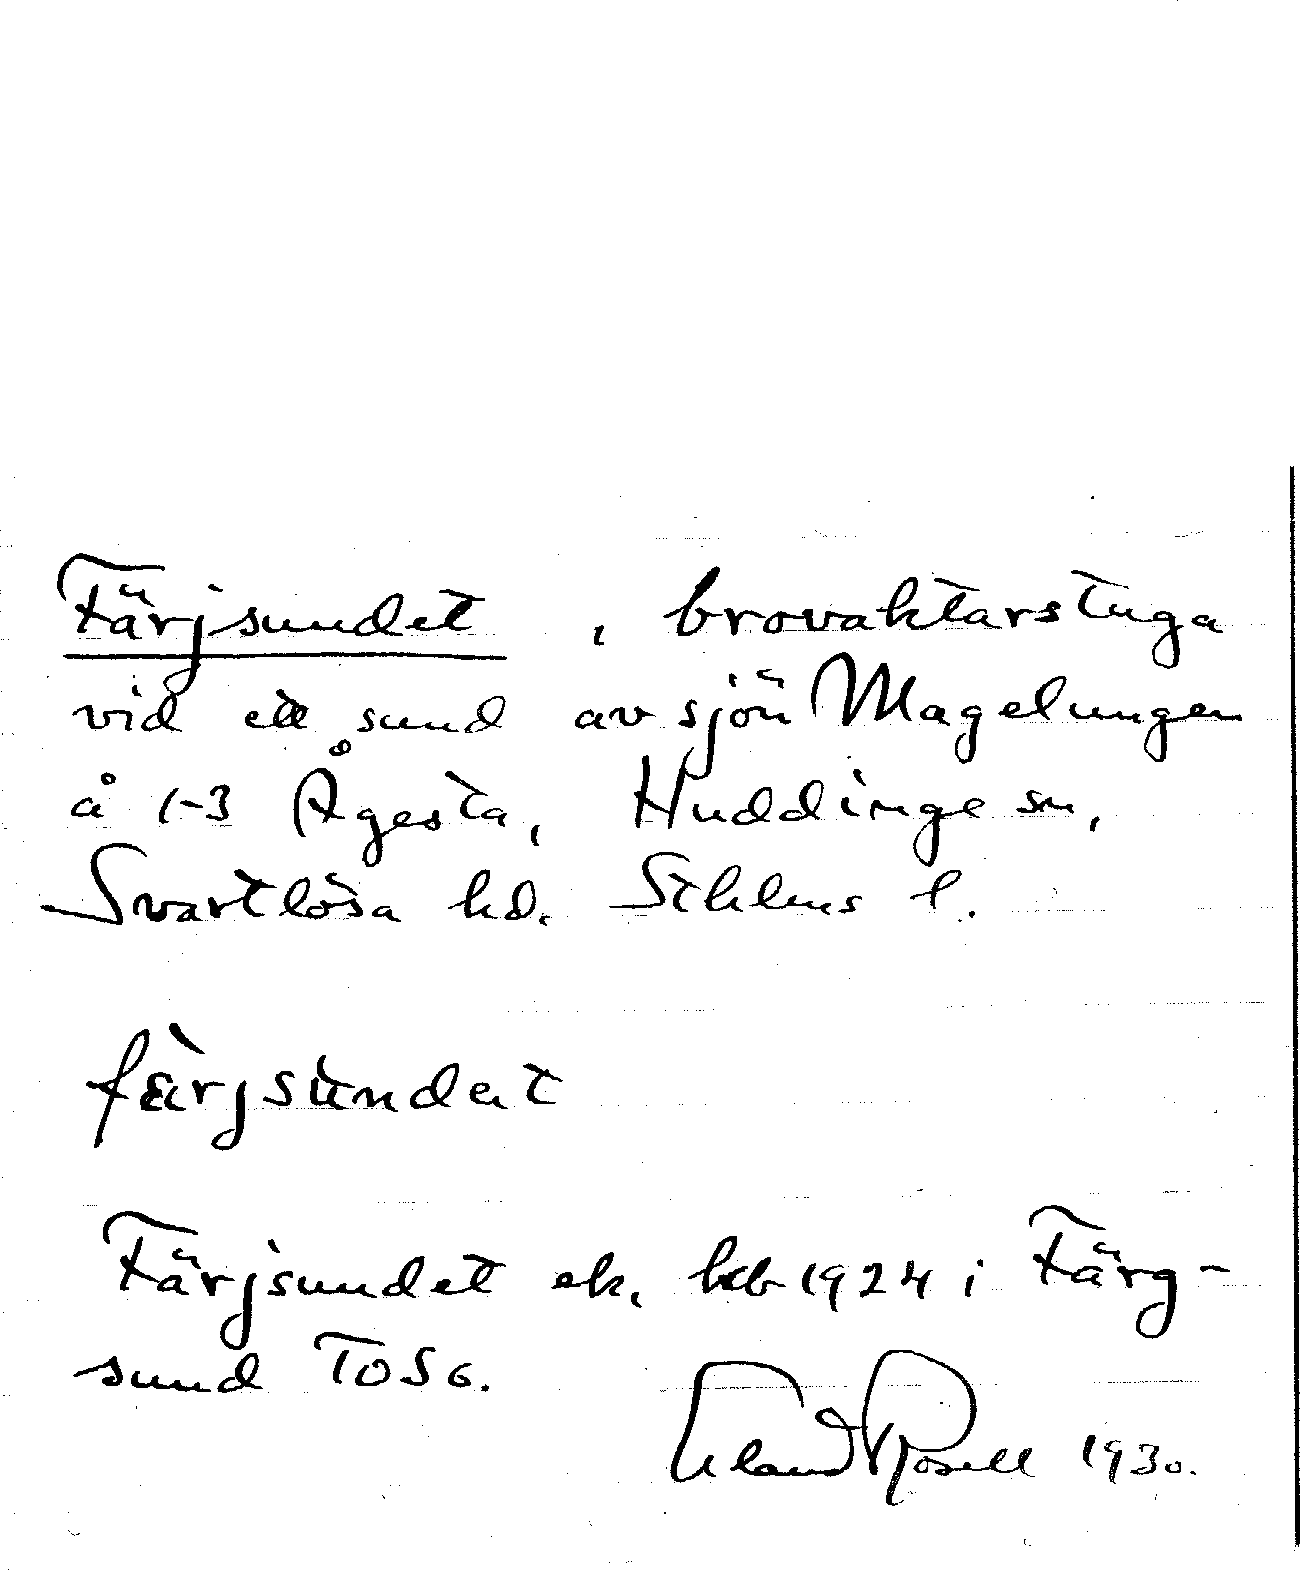 Färjsundet, brovaktarstuga
vid ett sund av sjön Magelungen
å 1-3 Ågesta, Huddinge sn,
Svartlösa hd. Sthlms l.
färjsundet
Färjsundet ek. kb 1924 i Färg-
sund TOSG.
Erland Rosell 1930.